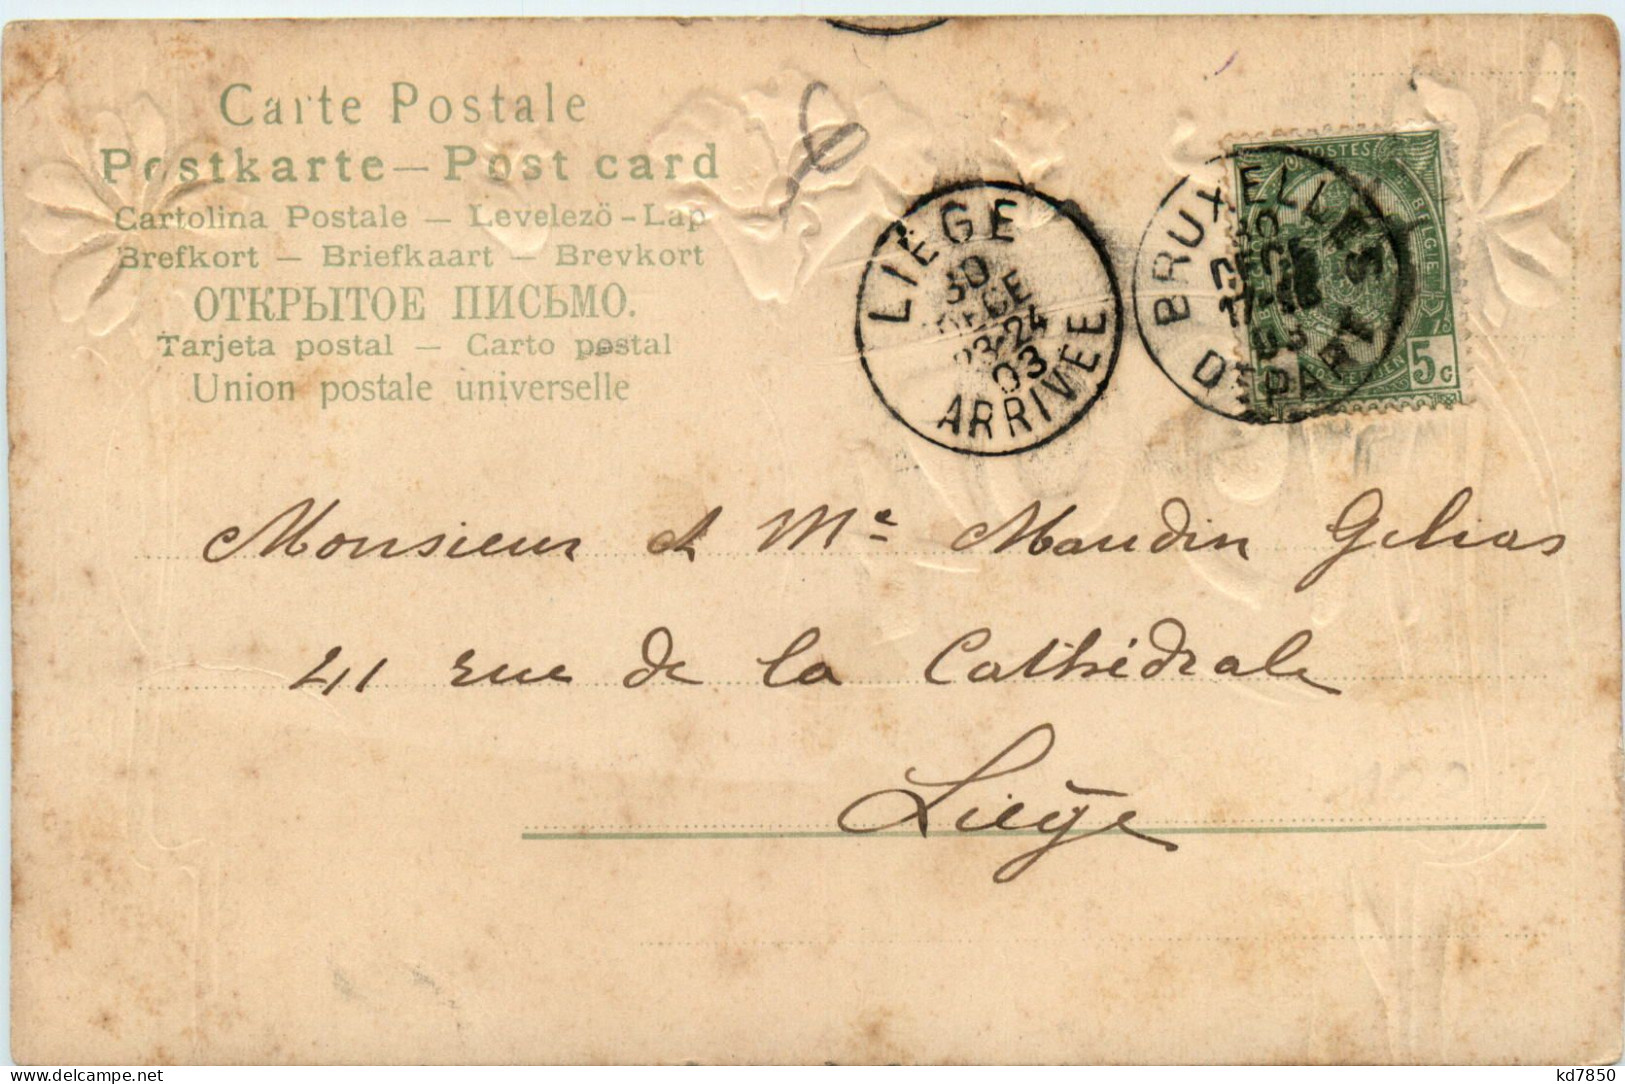 Carte Postale
Postkarte — Post card
Cartolina Postale — Levelezö-Lap
Brefkort — Briefkaart — Brevkort
ОТКРЫТОЕ ПИСЬМО.
Tarjeta postal — Carto postal
Union postale universelle
LIÈGE
30
DECE
23-24
03
ARRIVÉE
BRUXELLES
DÉPART
POSTES
BELGIE
5 c
Monsieur et Me Maudin
41 rue de la Cathédrale
Liège
kd7850